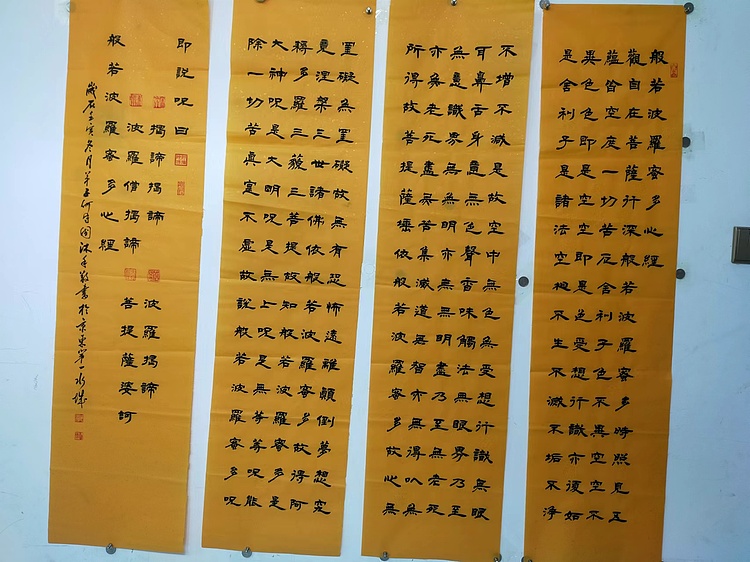 般若波羅蜜多心經
觀自在菩薩行深般若波羅蜜多時照見五
蘊皆空度一切苦厄舍利子色不異空空不
異色色即是空空即是色受想行識亦復如
是舍利子是諸法空相不生不滅不垢不淨
不增不減是故空中無色無受想行識無眼
耳鼻舌身意無色聲香味觸法無眼界乃至
無意識界無無明亦無無明盡乃至無老死
亦無老死盡無苦集滅道無智亦無得以無
所得故菩提薩埵依般若波羅蜜多故心無
罣礙無罣礙故無有恐怖遠離顛倒夢想究
竟涅槃三世諸佛依般若波羅蜜多故得阿
耨多羅三藐三菩提故知般若波羅蜜多是
大神呪是大明呪是無上呪是無等等呪能
除一切苦真實不虛故說般若波羅蜜多呪
即說呪曰
揭諦揭諦 波羅揭諦
波羅僧揭諦 菩提薩婆訶
般若波羅蜜多心經
歲在己亥冬月弟子何國沐手敬書於京東第一水城